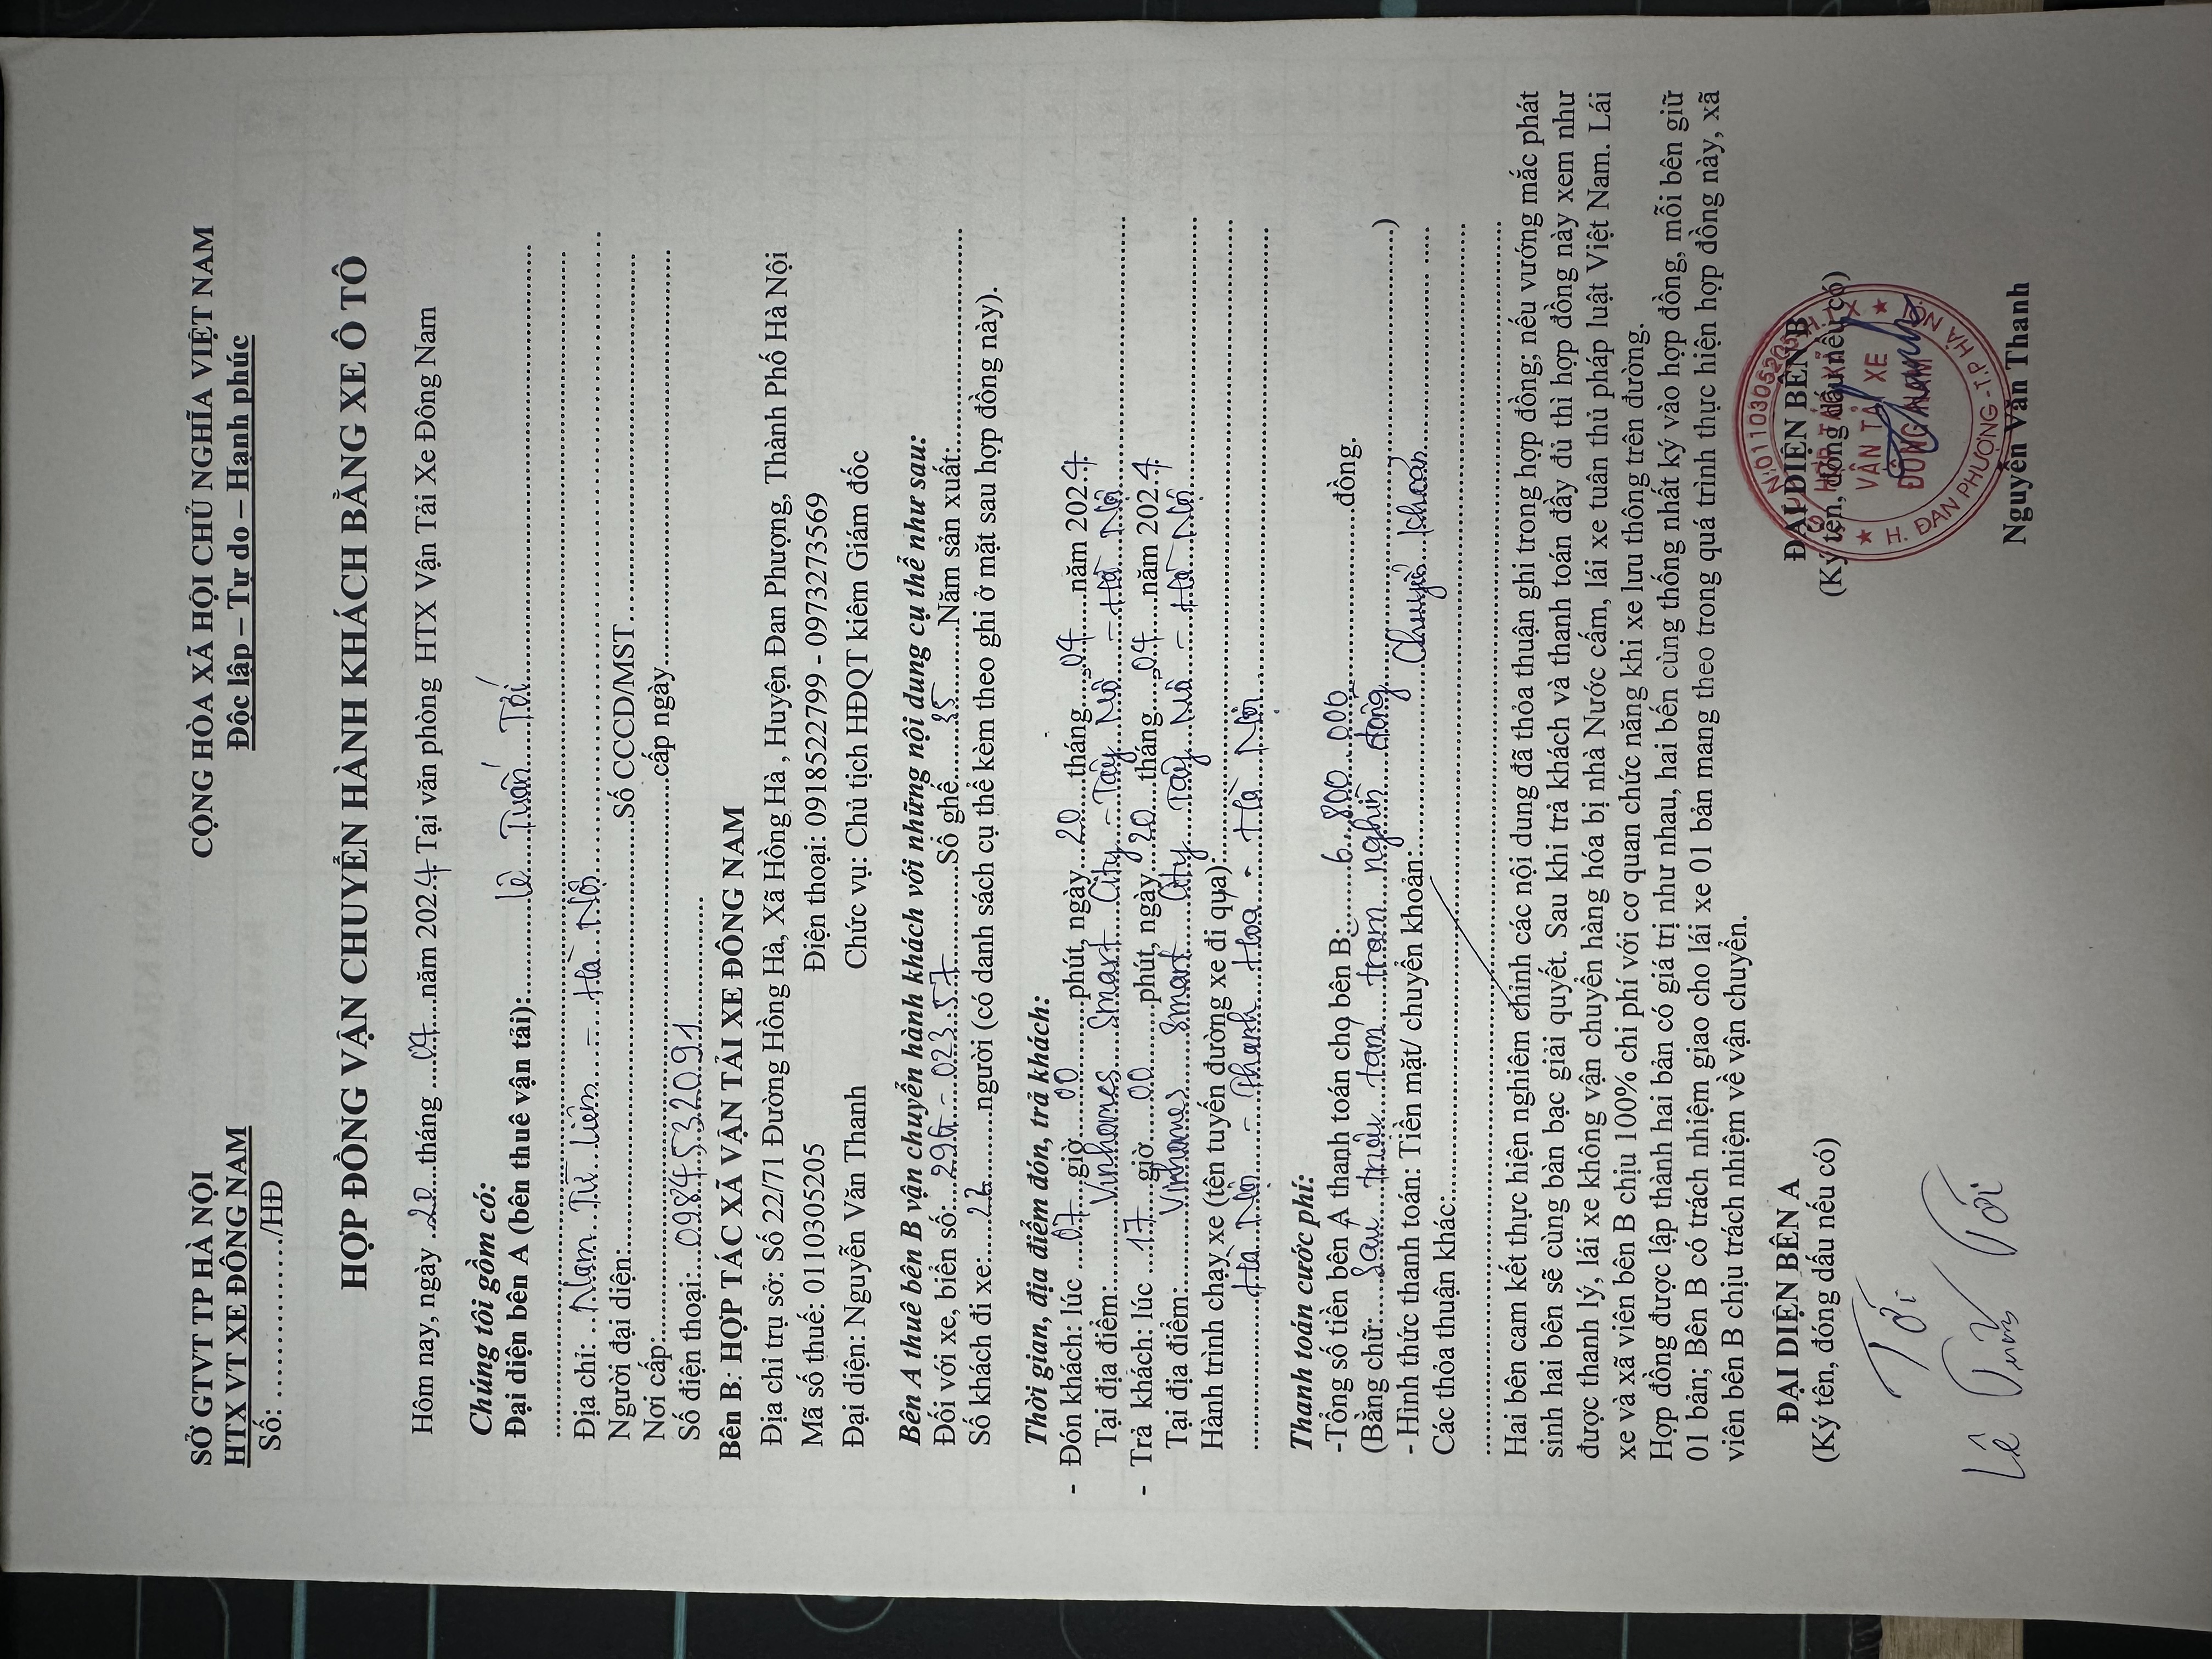 SỞ GTVT TP HÀ NỘI
HTX VT XE ĐÔNG NAM
Số: ……………/HĐ
CỘNG HÒA XÃ HỘI CHỦ NGHĨA VIỆT NAM
Độc lập – Tự do – Hạnh phúc
HỢP ĐỒNG VẬN CHUYỂN HÀNH KHÁCH BẰNG XE Ô TÔ
Hôm nay, ngày 20 tháng 04 năm 2024 Tại văn phòng HTX Vận Tải Xe Đông Nam
Chúng tôi gồm có:
Đại diện bên A (bên thuê vận tải): Lê Tuấn Tới
Địa chỉ: Nam Từ Liêm - Hà Nội
Người đại diện: Số CCCD/MST
Nơi cấp: cấp ngày
Số điện thoại: 0984532091
Bên B: HỢP TÁC XÃ VẬN TẢI XE ĐÔNG NAM
Địa chỉ trụ sở: Số 22/71 Đường Hồng Hà, Xã Hồng Hà , Huyện Đan Phượng, Thành Phố Hà Nội
Mã số thuế: 0110305205 Điện thoại: 0918522799 - 0973273569
Đại diện: Nguyễn Văn Thanh Chức vụ: Chủ tịch HĐQT kiêm Giám đốc
Bên A thuê bên B vận chuyển hành khách với những nội dung cụ thể như sau:
Đối với xe, biển số: 29G - 023.57 Số ghế 35 Năm sản xuất:
Số khách đi xe: người (có danh sách cụ thể kèm theo ghi ở mặt sau hợp đồng này).
Thời gian, địa điểm đón, trả khách:
- Đón khách: lúc 07 giờ 00 phút, ngày 20 tháng 04 năm 2024
Tại địa điểm: Vinhomes Smart City - Tây Mỗ - Hà Nội
- Trả khách: lúc 17 giờ 00 phút, ngày 20 tháng 04 năm 2024
Tại địa điểm: Vinhomes Smart City Tây Mỗ - Hà Nội
Hành trình chạy xe (tên tuyến đường xe đi qua):
Hà Nội - Thanh Hoá - Hà Nội
Thanh toán cước phí:
-Tổng số tiền bên A thanh toán cho bên B: 6.800.000 đồng.
(Bằng chữ: Sáu triệu tám trăm nghìn đồng )
- Hình thức thanh toán: Tiền mặt/ chuyển khoản: Chuyển khoản
Các thỏa thuận khác:
Hai bên cam kết thực hiện nghiêm chỉnh các nội dung đã thỏa thuận ghi trong hợp đồng; nếu vướng mắc phát
sinh hai bên sẽ cùng bàn bạc giải quyết. Sau khi trả khách và thanh toán đầy đủ thì hợp đồng này xem như
được thanh lý, lái xe không vận chuyển hàng hóa bị nhà Nước cấm, lái xe tuân thủ pháp luật Việt Nam. Lái
xe và xã viên bên B chịu 100% chi phí với cơ quan chức năng khi xe lưu thông trên đường.
Hợp đồng được lập thành hai bản có giá trị như nhau, hai bến cùng thống nhất ký vào hợp đồng, mỗi bên giữ
01 bản; Bên B có trách nhiệm giao cho lái xe 01 bản mang theo trong quá trình thực hiện hợp đồng này, xã
viên bên B chịu trách nhiệm về vận chuyển.
ĐẠI DIỆN BÊN A
(Ký tên, đóng dấu nếu có)
Tới
Lê Tuấn Tới
ĐẠI DIỆN BÊN B
(Ký tên, đóng dấu nếu có)
HỢP TÁC XÃ
VẬN TẢI XE
ĐÔNG NAM
H. ĐAN PHƯỢNG - T.P HÀ NỘI
Nguyễn Văn Thanh